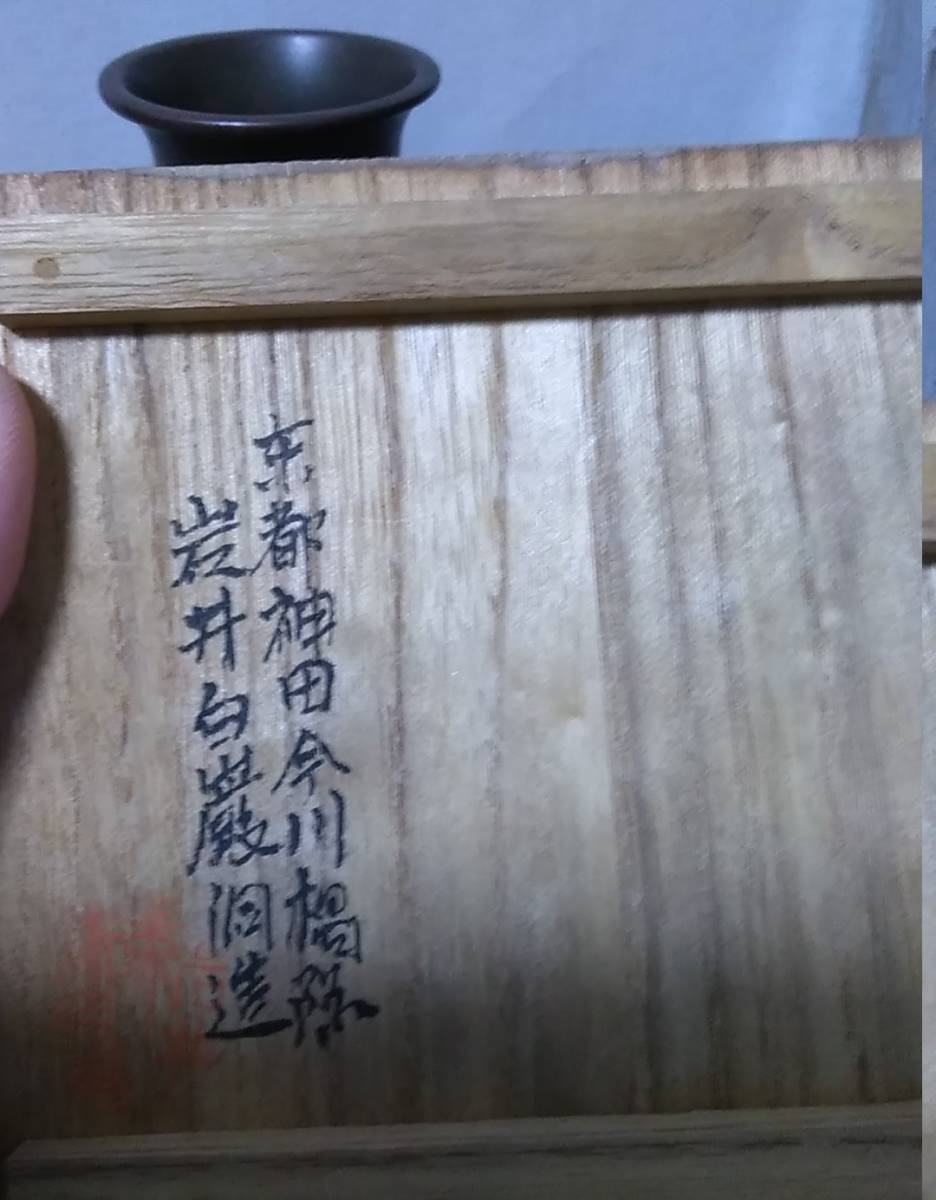 東都神田今川橋際
岩井白巌洞造